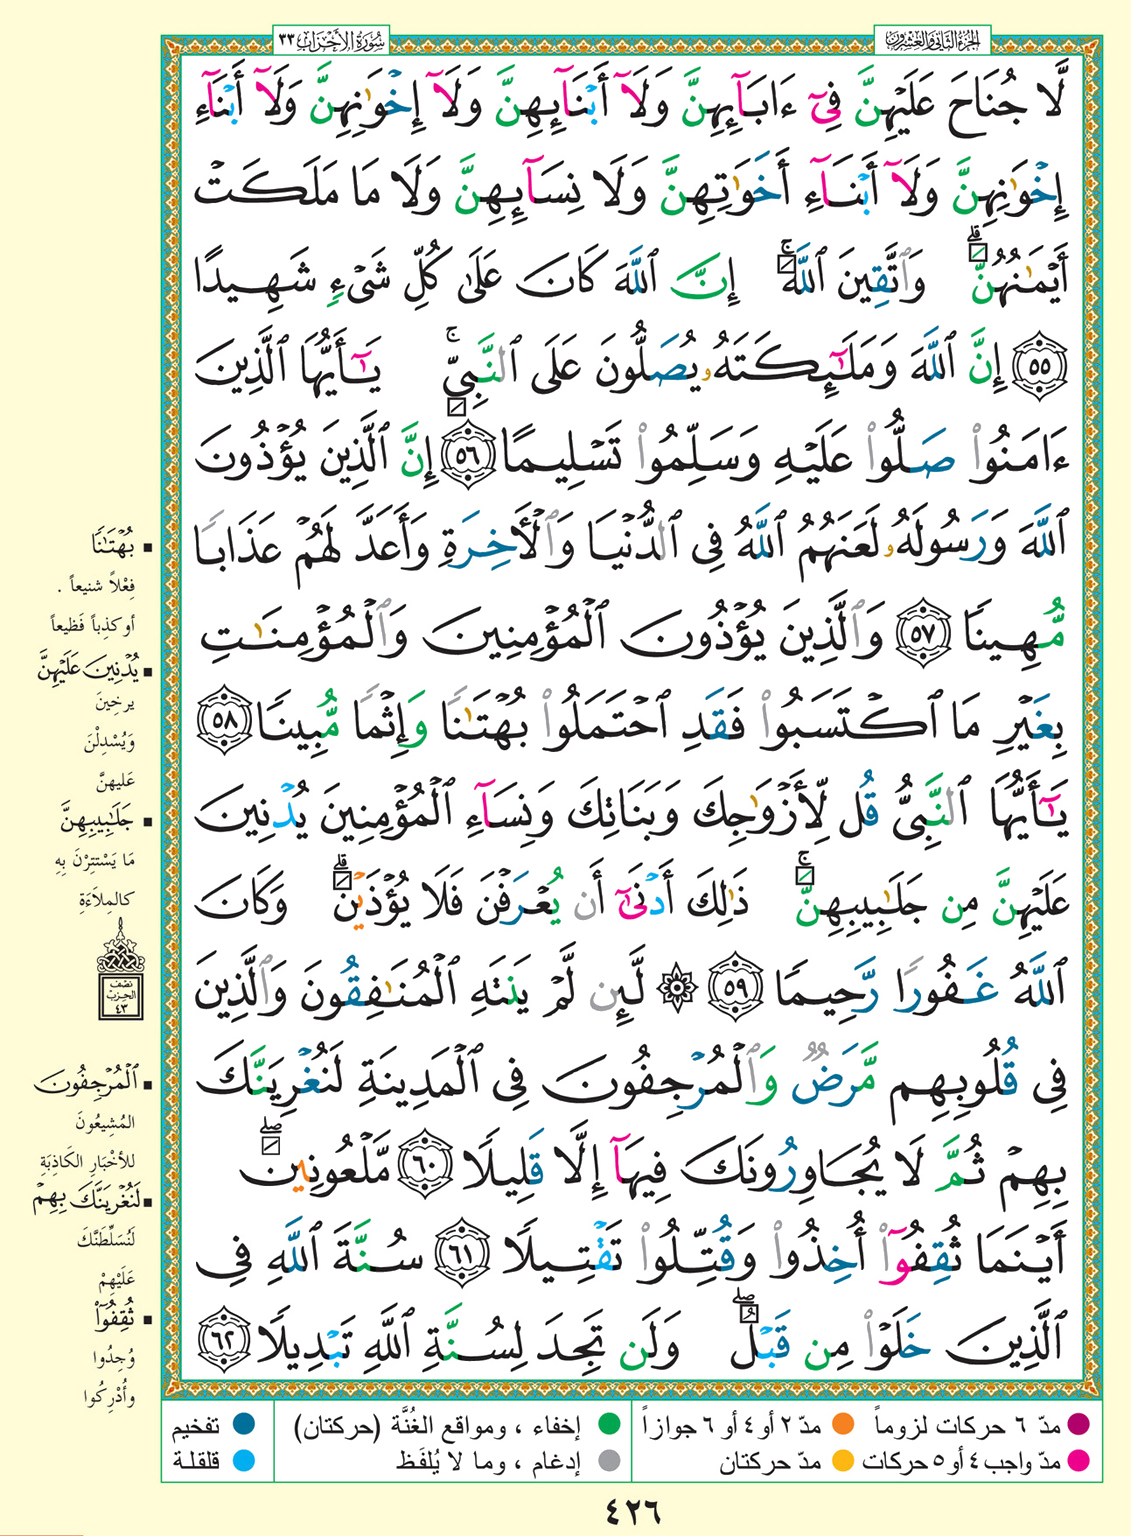 الجزء الثاني والعشرون
سُورَةُ الأَحْزَابِ ٣٣
لَّا جُنَاحَ عَلَيْهِنَّ فِىٓ ءَابَآئِهِنَّ وَلَآ أَبْنَآئِهِنَّ وَلَآ إِخْوَٰنِهِنَّ وَلَآ أَبْنَآءِ
إِخْوَٰنِهِنَّ وَلَآ أَبْنَآءِ أَخَوَٰتِهِنَّ وَلَا نِسَآئِهِنَّ وَلَا مَا مَلَكَتْ
أَيْمَٰنُهُنَّ ۗ وَٱتَّقِينَ ٱللَّهَ ۚ إِنَّ ٱللَّهَ كَانَ عَلَىٰ كُلِّ شَىْءٍ شَهِيدًا
٥٥ إِنَّ ٱللَّهَ وَمَلَٰٓئِكَتَهُۥ يُصَلُّونَ عَلَى ٱلنَّبِىِّ ۚ يَٰٓأَيُّهَا ٱلَّذِينَ
ءَامَنُوا۟ صَلُّوا۟ عَلَيْهِ وَسَلِّمُوا۟ تَسْلِيمًا ٥٦ إِنَّ ٱلَّذِينَ يُؤْذُونَ
ٱللَّهَ وَرَسُولَهُۥ لَعَنَهُمُ ٱللَّهُ فِى ٱلدُّنْيَا وَٱلْأَخِرَةِ وَأَعَدَّ لَهُمْ عَذَابًا
مُّهِينًا ٥٧ وَٱلَّذِينَ يُؤْذُونَ ٱلْمُؤْمِنِينَ وَٱلْمُؤْمِنَٰتِ
بِغَيْرِ مَا ٱكْتَسَبُوا۟ فَقَدِ ٱحْتَمَلُوا۟ بُهْتَٰنًا وَإِثْمًا مُّبِينًا ٥٨
يَٰٓأَيُّهَا ٱلنَّبِىُّ قُل لِّأَزْوَٰجِكَ وَبَنَاتِكَ وَنِسَآءِ ٱلْمُؤْمِنِينَ يُدْنِينَ
عَلَيْهِنَّ مِن جَلَٰبِيبِهِنَّ ۚ ذَٰلِكَ أَدْنَىٰٓ أَن يُعْرَفْنَ فَلَا يُؤْذَيْنَ ۗ وَكَانَ
ٱللَّهُ غَفُورًا رَّحِيمًا ٥٩ ۞ لَّئِن لَّمْ يَنتَهِ ٱلْمُنَٰفِقُونَ وَٱلَّذِينَ
فِى قُلُوبِهِم مَّرَضٌ وَٱلْمُرْجِفُونَ فِى ٱلْمَدِينَةِ لَنُغْرِيَنَّكَ
بِهِمْ ثُمَّ لَا يُجَاوِرُونَكَ فِيهَآ إِلَّا قَلِيلًا ٦٠ مَّلْعُونِينَ ۖ
أَيْنَمَا ثُقِفُوٓا۟ أُخِذُوا۟ وَقُتِّلُوا۟ تَقْتِيلًا ٦١ سُنَّةَ ٱللَّهِ فِى
ٱلَّذِينَ خَلَوْا۟ مِن قَبْلُ ۖ وَلَن تَجِدَ لِسُنَّةِ ٱللَّهِ تَبْدِيلًا ٦٢
▪ بُهْتَٰنًا
فِعْلاً شنيعاً .
أو كذِباً فَظيعاً
▪ يُدْنِينَ عَلَيْهِنَّ
يرخِينَ
وَيُسْدِلْنَ
عَليهنَّ
▪ جَلَٰبِيبِهِنَّ
مَا يَسْتتِرْنَ بِهِ
كالمِلَاءَةِ
نصف
الحزب
٤٣
▪ ٱلْمُرْجِفُونَ
المُشِيعُونَ
للأخْبَارِ الكَاذِبَةِ
▪ لَنُغْرِيَنَّكَ بِهِمْ
لَنُسَلِّطَنَّكَ
عَلَيْهِمْ
▪ ثُقِفُوٓا۟
وُجِدُوا
وأُدْرِكُوا
مدّ ٦ حركات لزوماً
مدّ ٢ أو ٤ أو ٦ جوازاً
إخفاء ، ومواقع الغُنَّة (حركتان)
تفخيم
مدّ واجب ٤ أو ٥ حركات
مدّ حركتان
إدغام ، وما لا يُلفَظ
قلقلة
٤٢٦